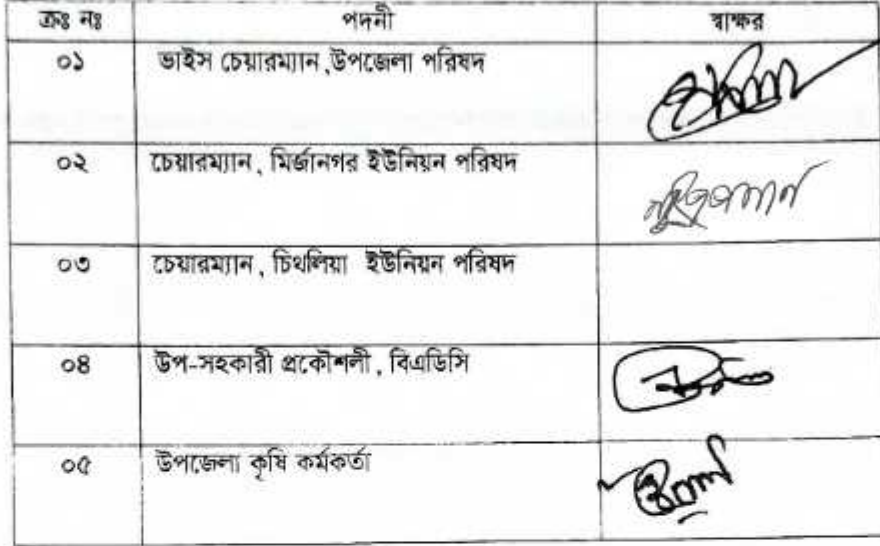 ক্রঃ নঃ পদনী স্বাক্ষর
০১ ভাইস চেয়ারম্যান ,উপজেলা পরিষদ
০২ চেয়ারম্যান , মির্জানগর ইউনিয়ন পরিষদ
০৩ চেয়ারম্যান , চিথলিয়া ইউনিয়ন পরিষদ
০৪ উপ-সহকারী প্রকৌশলী , বিএডিসি
০৫ উপজেলা কৃষি কর্মকর্তা